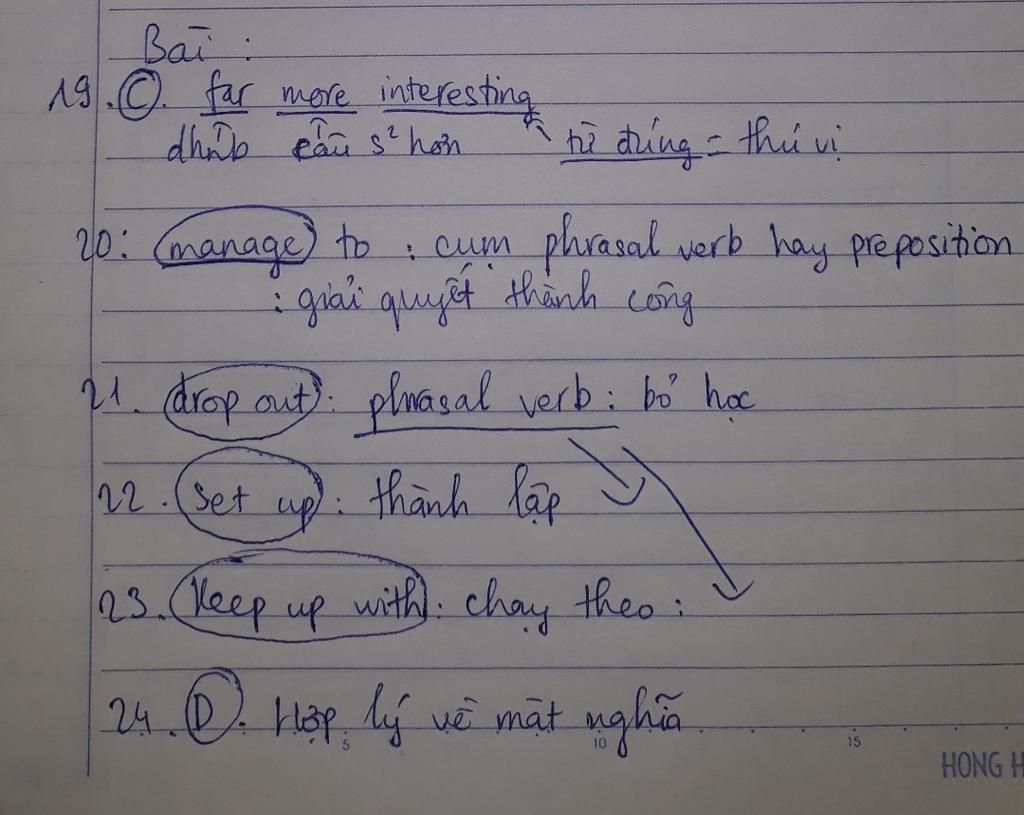 Bài :
19. C. far more interesting
dhnb cấu s² hơn từ đúng = thú vị
20: manage to : cụm phrasal verb hay preposition
: giải quyết thành công
21. drop out : phrasal verb : bỏ học
22. set up : thành lập
23. Keep up with : chạy theo :
24. D. Hợp lý về mặt nghĩa
5 10 15
HONG H